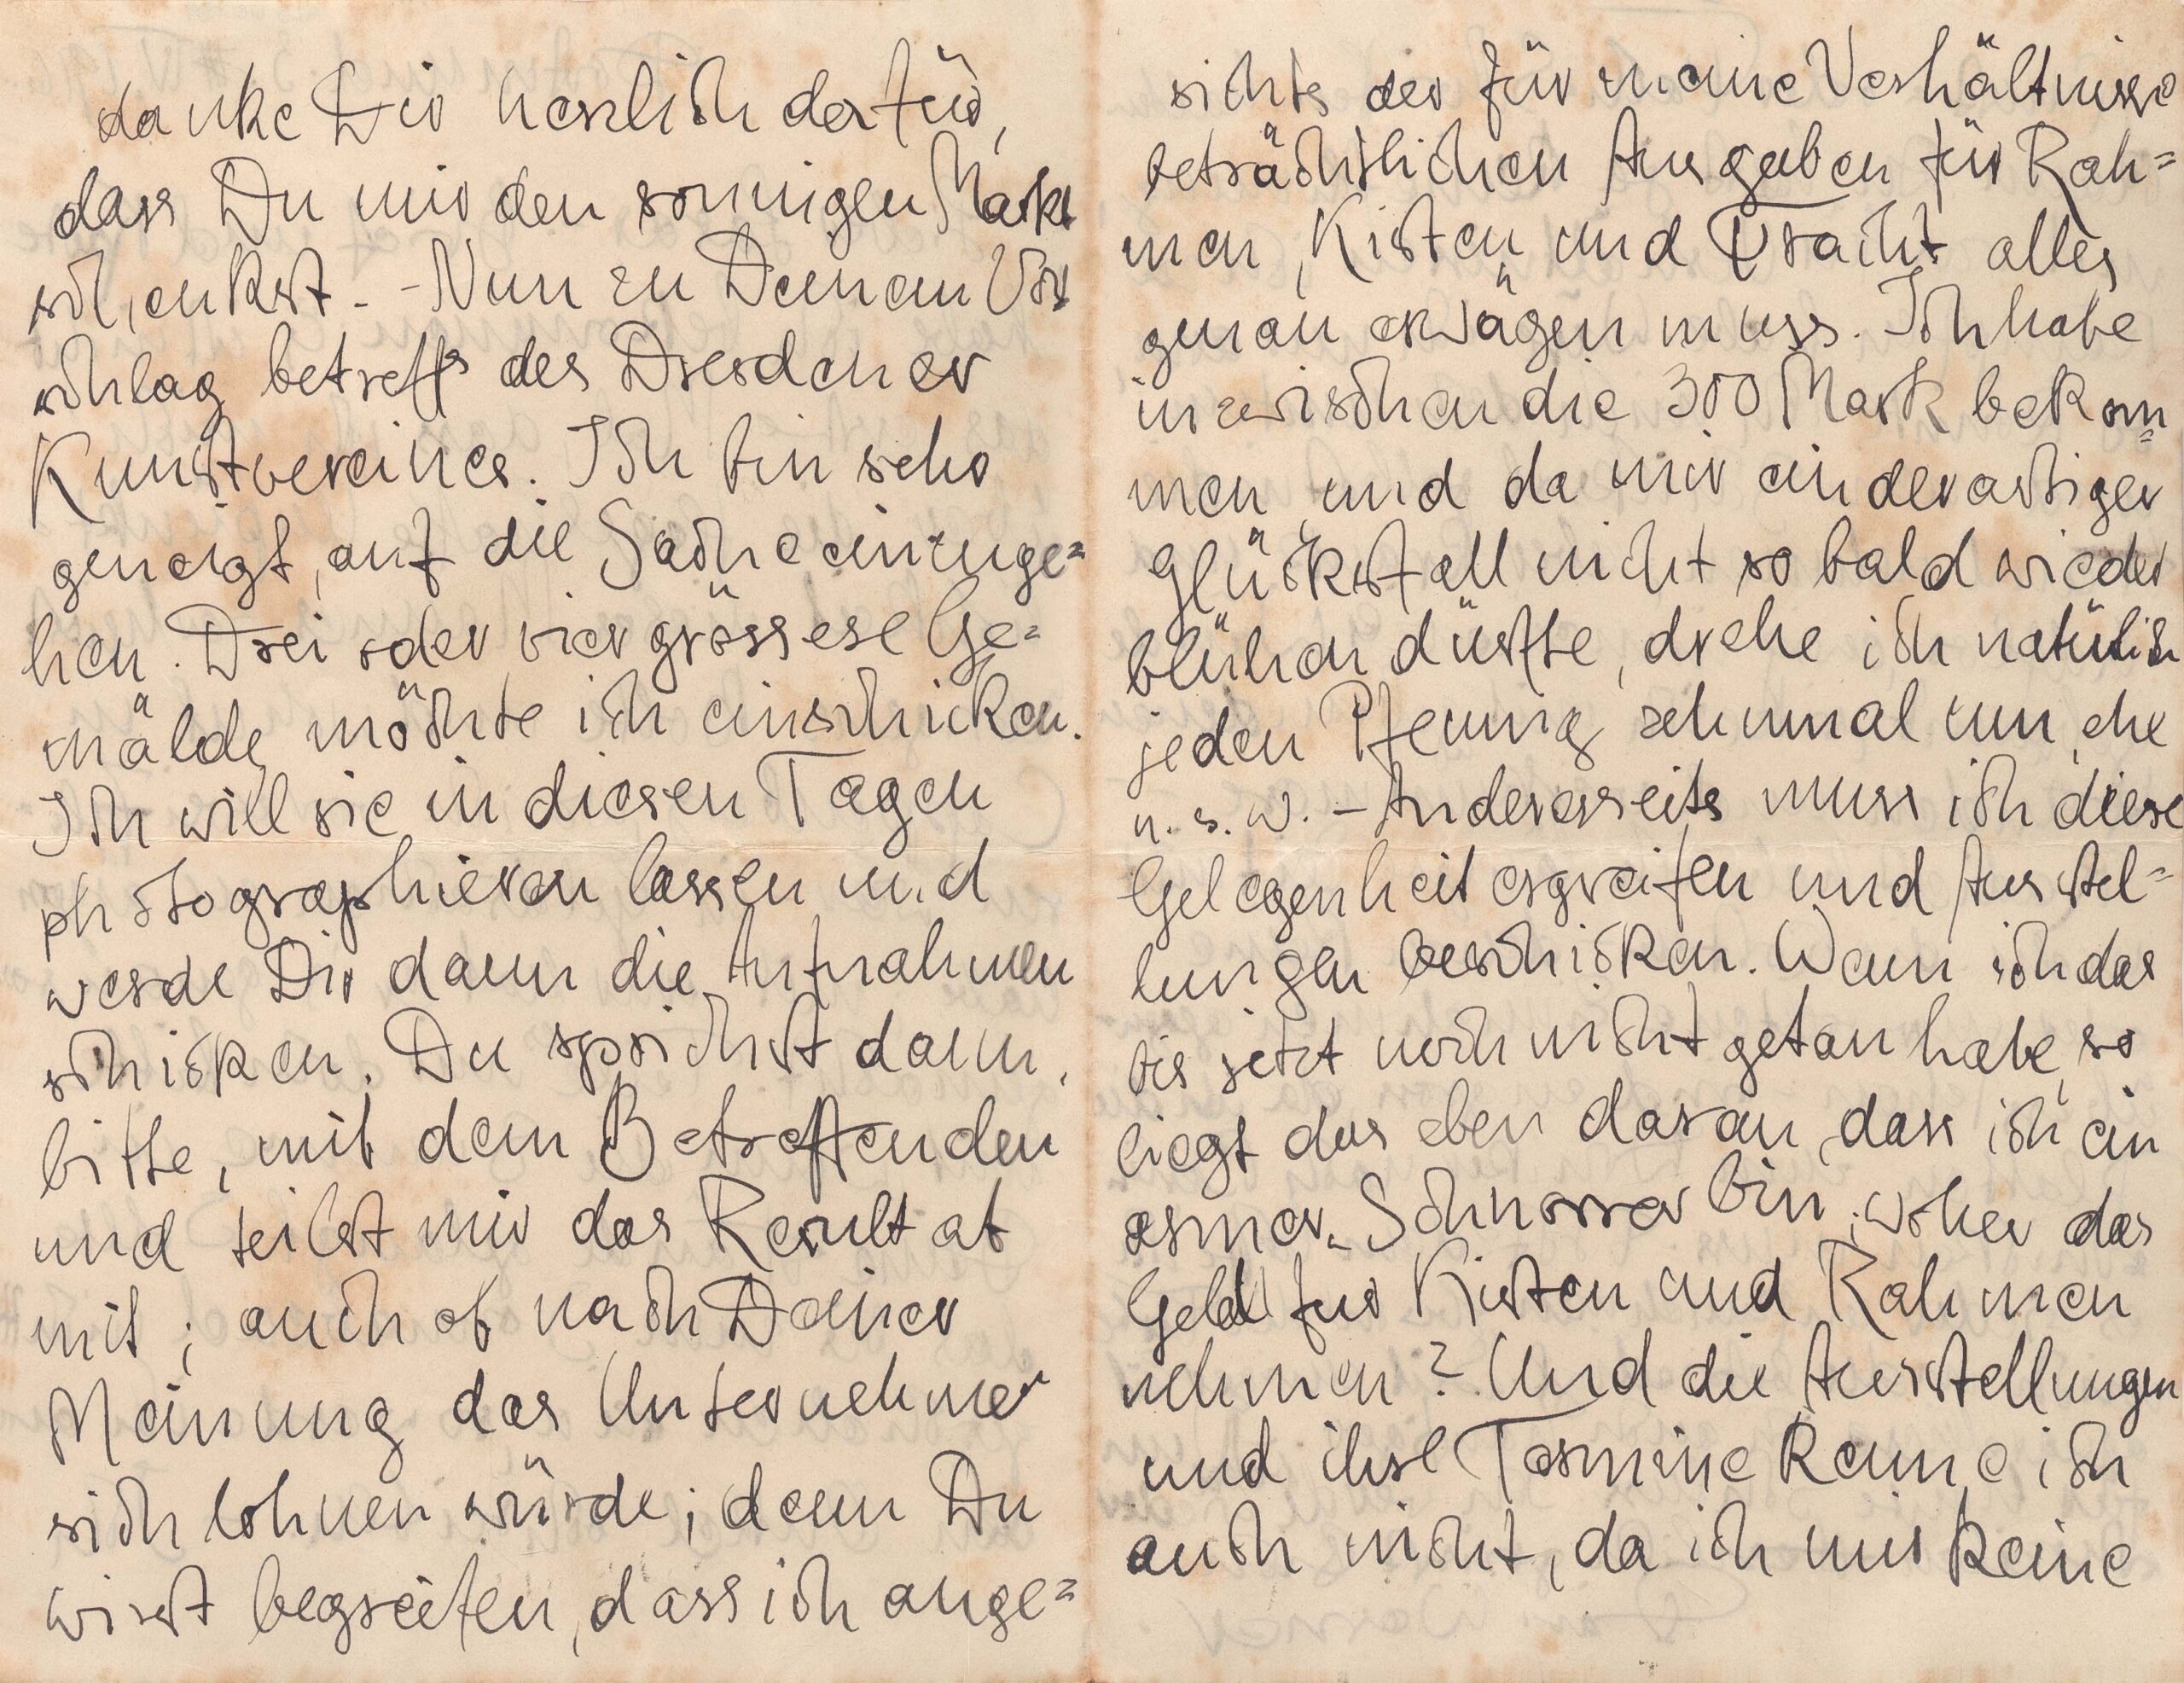 danke Dir herzlich dafür,
dass Du mir den sonnigen Markt
schenkst. - Nun zu Deinem Vor
schlag betreffs des Dresdener
Kunstvereines. Ich bin sehr
geneigt, auf die Sache einzuge=
hen. Drei oder vier grössese Ge=
mälde möchte ich einschicken.
Ich will sie in diesen Tagen
photographieren lassen und
werde Dir dann die Aufnahmen
schicken. Du sprichst dann,
bitte, mit dem Betreffenden
und teilst mir das Resultat
mit; auch ob nach Deiner
Meinung das Unternehmen
sich lohnen würde; denn Du
wirst begreifen, dass ich ange=
sichts der für meine Verhältnisse
beträchtlichen Ausgaben für Rah=
men, Kisten und Fracht alles
genau erwägen muss. Ich habe
inzwischen die 300 Mark bekom=
men, und da mir ein derartiger
Glücksfall nicht so bald wieder
blühen dürfte, drehe ich natürlich
jeden Pfennig zehnmal um, ehe
u. s. w. - Andererseits muss ich diese
Gelegenheit ergreifen und Ausstel=
lungen beschicken. Wenn ich das
bis jetzt noch nicht getan habe, so
liegt das eben daran, dass ich ein
armer Schnorrer bin; woher das
Geld für Kisten und Rahmen
nehmen? Und die Ausstellungen
und ihre Termine kenne ich
auch nicht, da ich mir keine